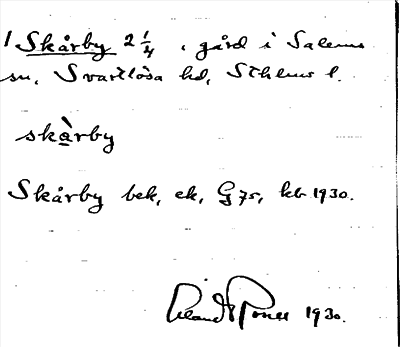 1 Skårby 2 1/4, gård i Salems
sn, Svartlösa hd, Sthlms l.
skàrby
Skårby bek, ek, G 75, kb 1930.
1930.